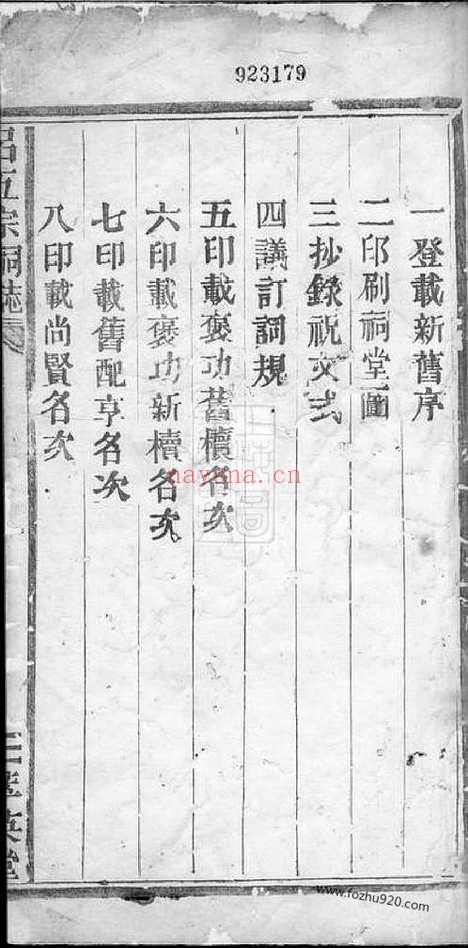 923179
一登載新舊序
二印刷祠堂圖
三抄錄祝文式
四議訂詞規
五印載褒功舊櫝名次
六印載褒功新櫝名次
七印載舊配享名次
八印載尚賢名次
呂五宗祠誌
nayona.cn
www.fozhu920.com